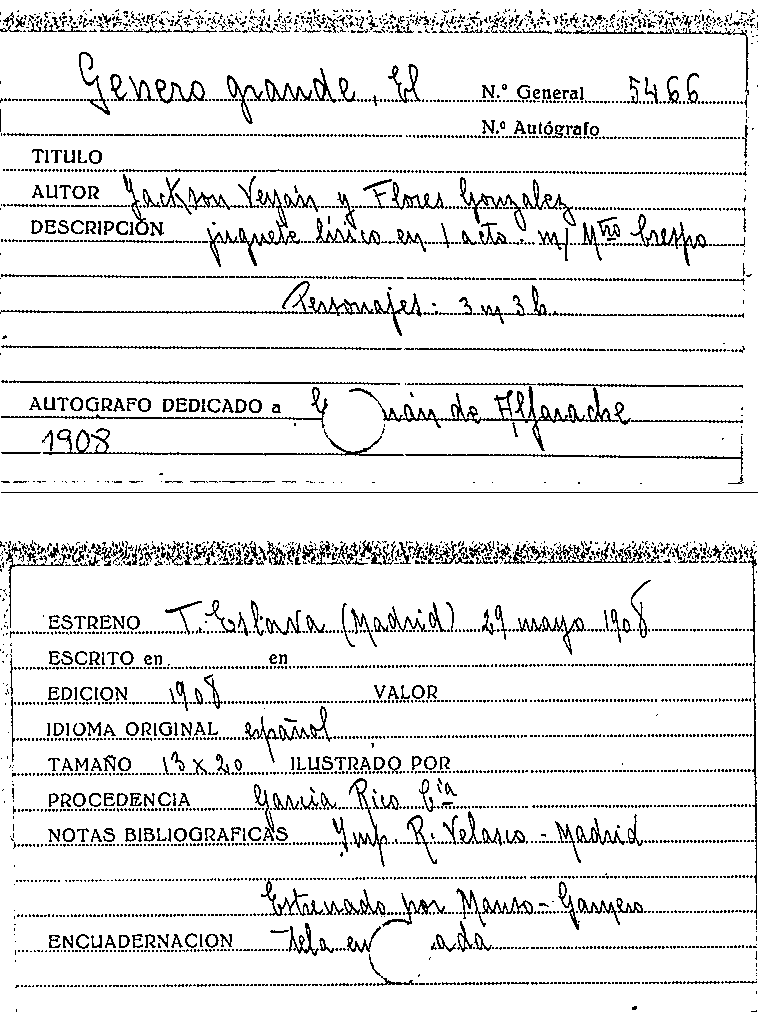 Genero grande, El N.º General 5466
N.º Autógrafo
TITULO
AUTOR Jackson Veyán y Flores Gonzalez
DESCRIPCIÓN juguete lírico en 1 acto. m/ Mtro Crespo
Personajes: 3 m 3 h.
AUTOGRAFO DEDICADO a de Alfarache
1908
ESTRENO T. Eslava (Madrid) 29 mayo 1908
ESCRITO en en
EDICION 1908 VALOR
IDIOMA ORIGINAL español
TAMAÑO 13 x 20 ILUSTRADO POR
PROCEDENCIA García Rico Cía
NOTAS BIBLIOGRAFICAS Imp. R. Velasco - Madrid
Estrenado por Manso-
ENCUADERNACION Tela